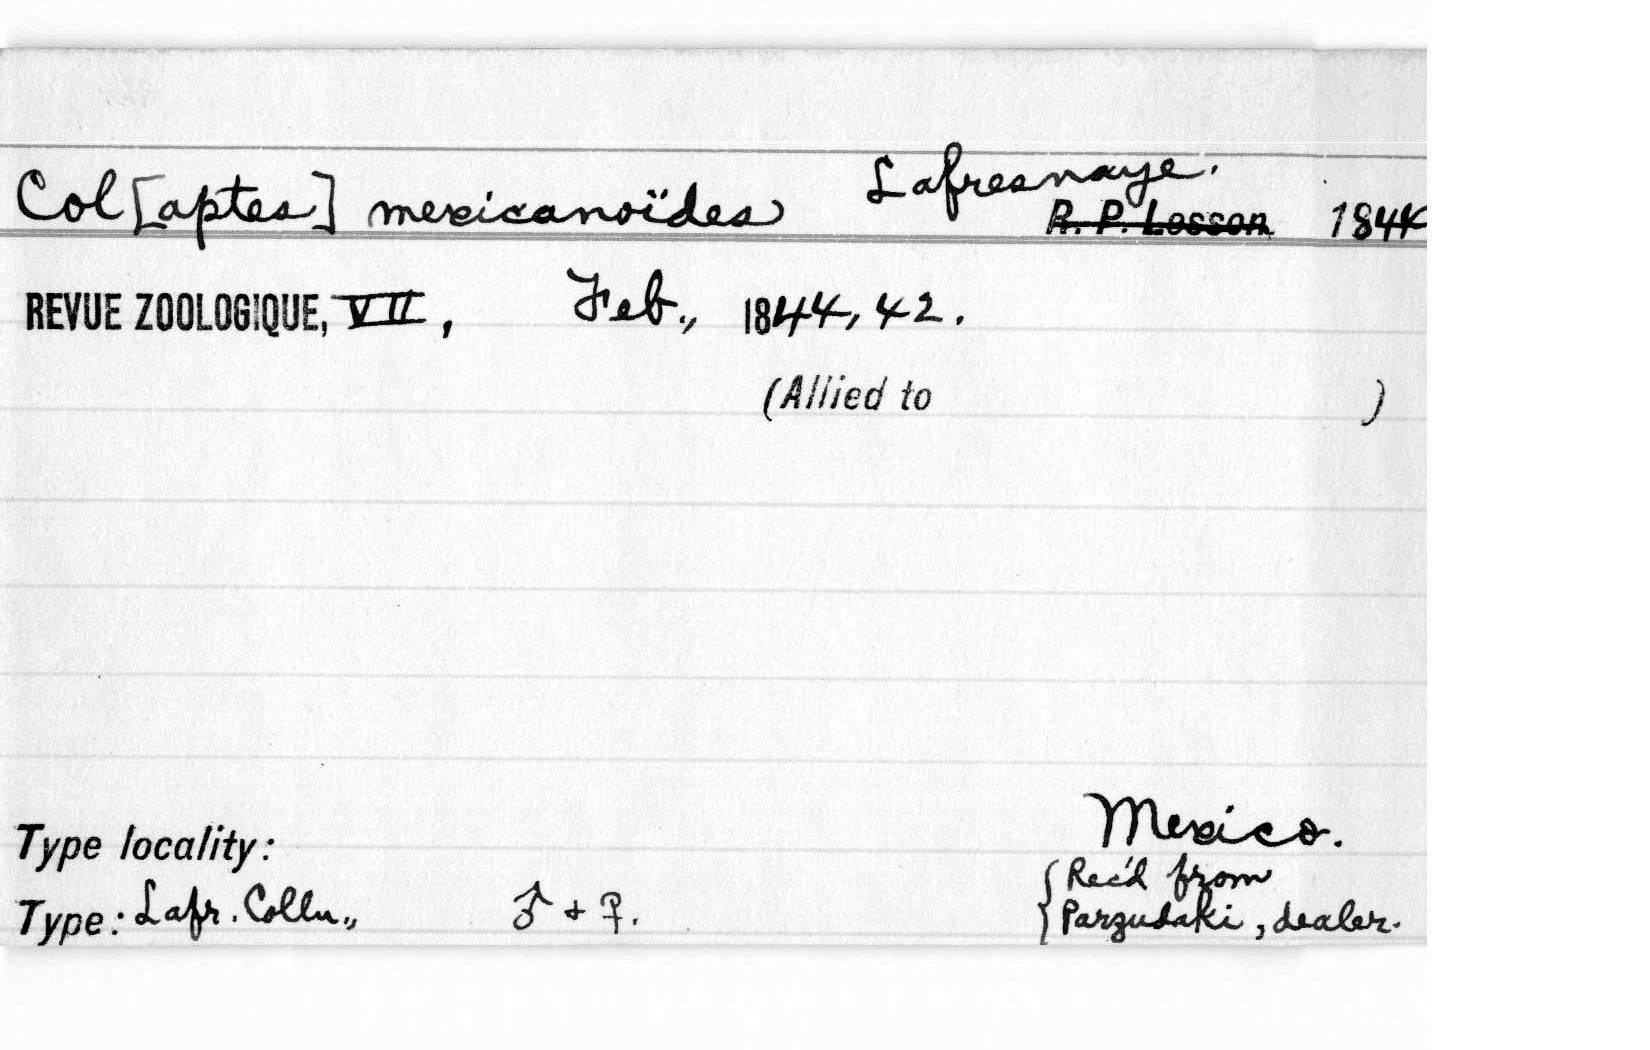 Col[aptes] mexicanoïdes Lafresnaye.
R. P. Lesson 1844
REVUE ZOOLOGIQUE, VII, Feb., 1844, 42.
(Allied to )
Type locality: Mexico.
{Rec'd from
Type: Lafr. Colln., ♂ + ♀. Parzudaki, dealer.